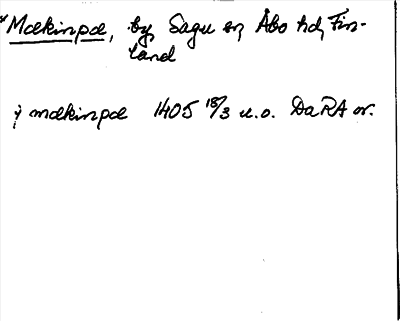 *Mækinpæ, by, Sagu sn, Åbo hd, Fin-
land
i mækinpæ 1405 18/3 u.o. DaRA or.